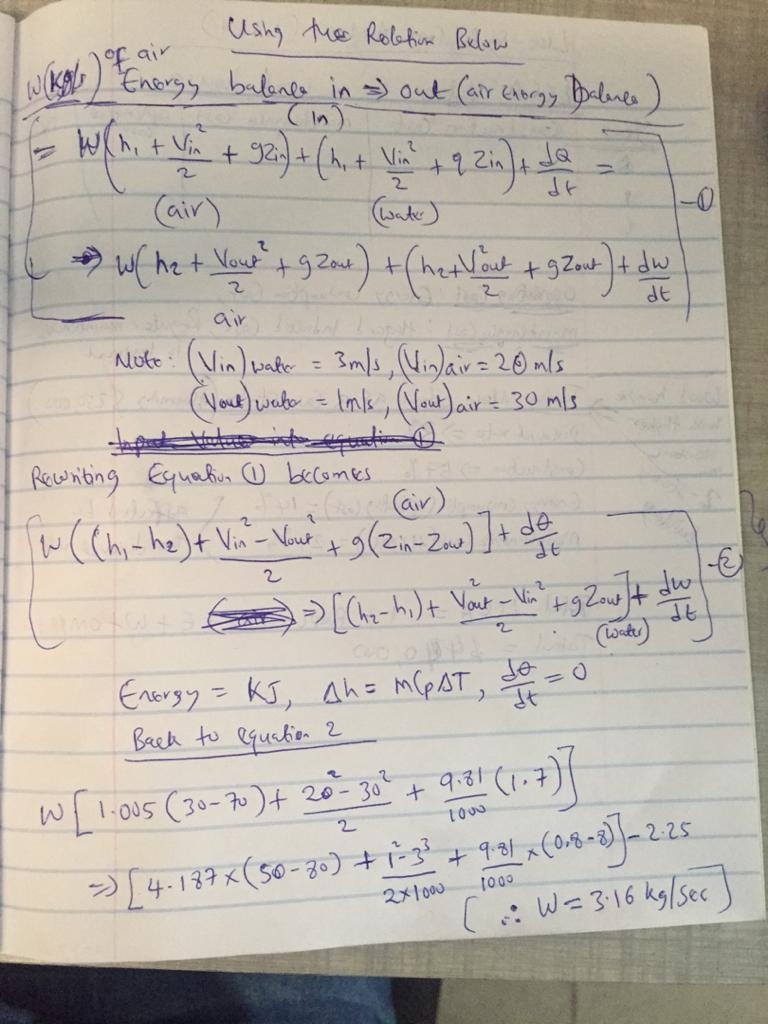 Using the Relation Below
W(kg/s) of air
Energy balance in => out (air energy balance)
(in)
= W(h₁ + Vin²/2 + gZin) + (h₁ + Vin²/2 + gZin) + dQ/dt =
(air) (water) -①
=> W(h₂ + Vout²/2 + gZout) + (h₂ + Vout²/2 + gZout) + dw/dt
air
Note: (Vin)water = 3m/s, (Vin)air = 20 m/s
(Vout)water = 1m/s, (Vout)air = 30 m/s
Input Values into equation ①
Rewriting Equation ① becomes
(air)
W((h₁-h₂) + Vin² - Vout²/2 + g(Zin-Zout)] + dθ/dt -②
=> [(h₂-h₁) + Vout² - Vin²/2 + gZout] + dw/dt
(water)
Energy = KJ, Δh = mCpΔT, dθ/dt = 0
Back to equation 2
W[1.005(30-70) + 20² - 30²/2 + 9.81/1000 (1.7)]
=> [4.187×(50-80) + 1² - 3³/2×1000 + 9.81/1000 × (0.8-8)] - 2.25
[∴ W = 3.16 kg/sec]